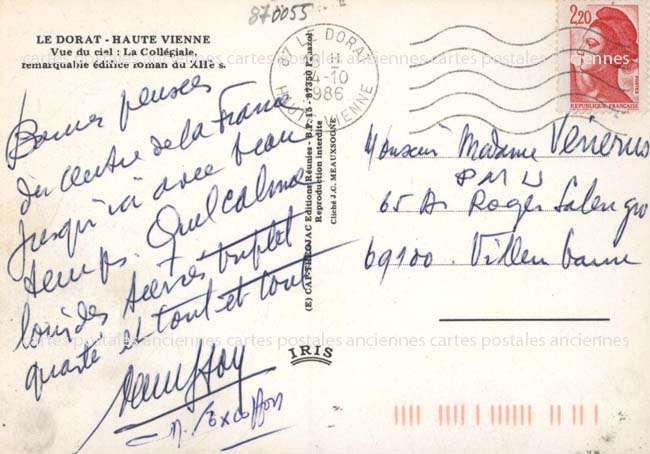 870055
LE DORAT - HAUTE VIENNE
Vue du ciel : La Collégiale,
remarquable édifice roman du XIIe s.
Bonnes pensées
du centre de la France
jusqu'ici avec beau
temps. Quel calme
loin des tiercés triplet
quarté et tout et tout
M. Excoffon
(E) CAP-THEOJAC Editions Réunies - B.P. 15 - 87350 Panazol
Reproduction interdite
Cliché J.C. MEAUXSOONE
IRIS
87 LE DORAT
4-10
1986
HAUTE VIENNE
2,20
POSTES
REPUBLIQUE FRANÇAISE
Monsieur Madame Venerus
PMU
65 A. Roger Salengro
69100. Villeurbanne
anciennes cartes postales anciennes cartes postales anciennes cartes postales anciennes
anciennes cartes postales anciennes cartes postales anciennes cartes postales anciennes